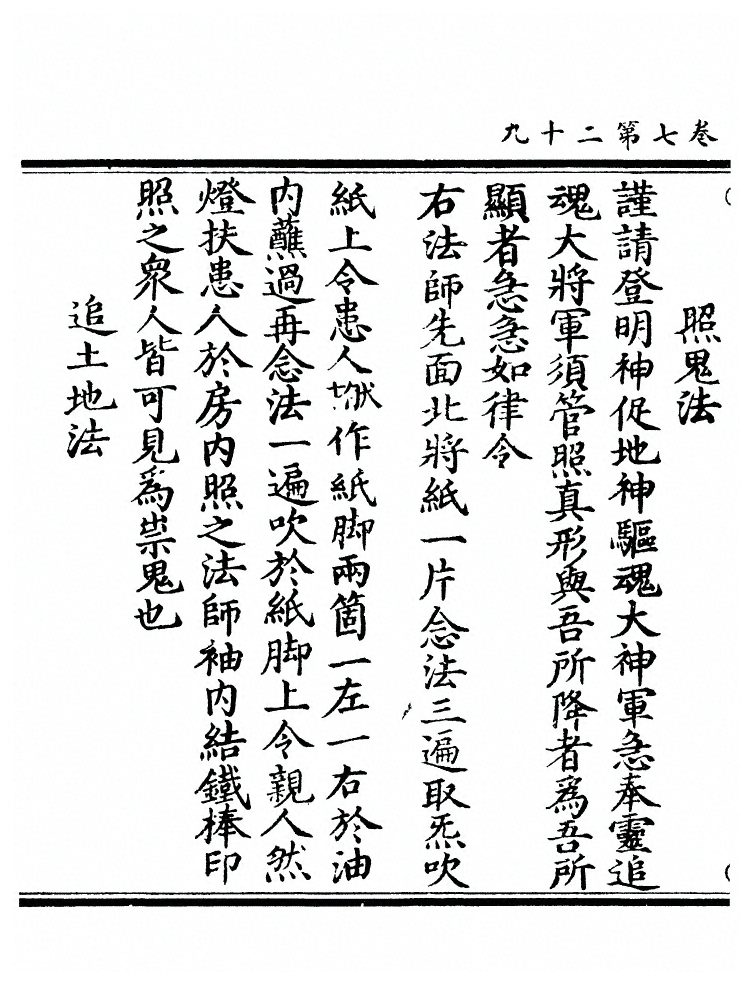 卷七第二十九
照鬼法
謹請登明神促地神驅魂大神軍急奉靈追
魂大將軍須管照真形與吾所降者爲吾所
顯者急急如律令
右法師先面北將紙一片念法三遍取炁吹
紙上令患人作紙脚兩箇一左一右於油
内蘸過再念法一遍吹於紙脚上令親人然
燈扶患人於房内照之法師袖内結鐵棒印
照之衆人皆可見爲祟鬼也
追土地法